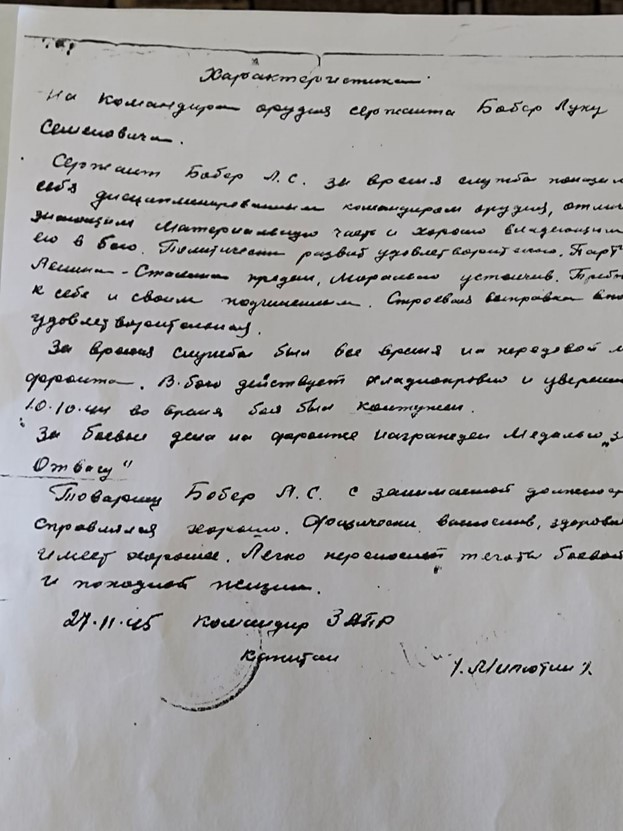 Характеристика
На командира орудия сержанта Бобер Луку
Семеновича.
Сержант Бобер Л.С. за время службы показал
себя дисциплинированным командиром орудия, отлич
знающим материальную часть и хорошо владеющим
ею в бою. Политически развит удовлетворительно. Парт
Ленина-Сталина предан, Морально устойчив. Треб
к себе и своим подчиненным. Строевая выправка впо
удовлетворительная.
За время службы был все время на передовой л
фронта. В бою действует хладнокровно и уверенн
10.10.44 во время боя был контужен.
За боевые дела на фронте награжден Медалью „з
Отвагу"
Товарищ Бобер Л.С. с занимаемой должност
справлялся хорошо. Физически вынослив, здоровь
имеет хорошее. Легко переносит тяготы боевой
и походной жизни.
27.11.45 Командир 3 АПР
капитан
/.Милютин/.